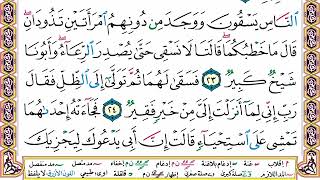 ٱلنَّاسِ يَسْقُونَ وَوَجَدَ مِن دُونِهِمُ ٱمْرَأَتَيْنِ تَذُودَانِ
قَالَ مَا خَطْبُكُمَا قَالَتَا لَا نَسْقِى حَتَّىٰ يُصْدِرَ ٱلرِّعَآءُ وَأَبُونَا
شَيْخٌ كَبِيرٌ ٢٣ فَسَقَىٰ لَهُمَا ثُمَّ تَوَلَّىٰٓ إِلَى ٱلظِّلِّ فَقَالَ
رَبِّ إِنِّى لِمَآ أَنزَلْتَ إِلَىَّ مِنْ خَيْرٍ فَقِيرٌ ٢٤ فَجَآءَتْهُ إِحْدَىٰهُمَا
تَمْشِى عَلَى ٱسْتِحْيَآءٍ قَالَتْ إِنَّ أَبِى يَدْعُوكَ لِيَجْزِيَكَ